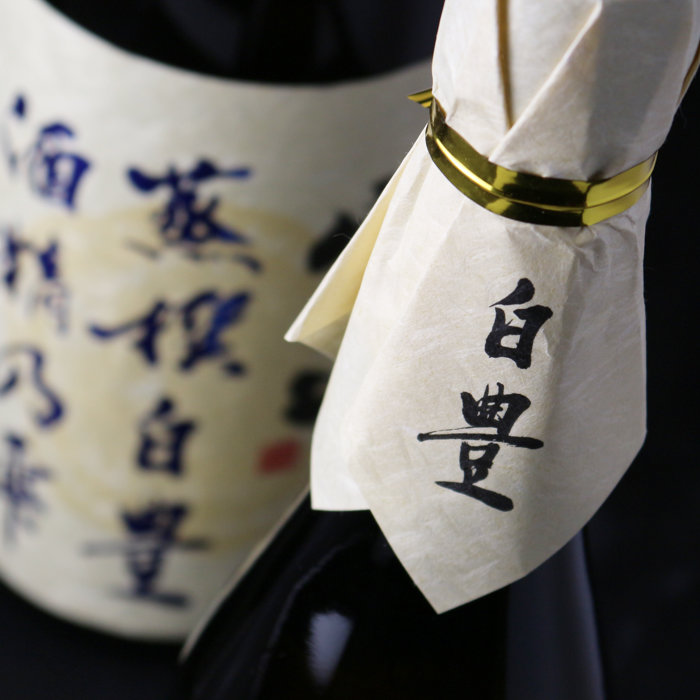 白豊
蒸撰白豊
酒精乃雫